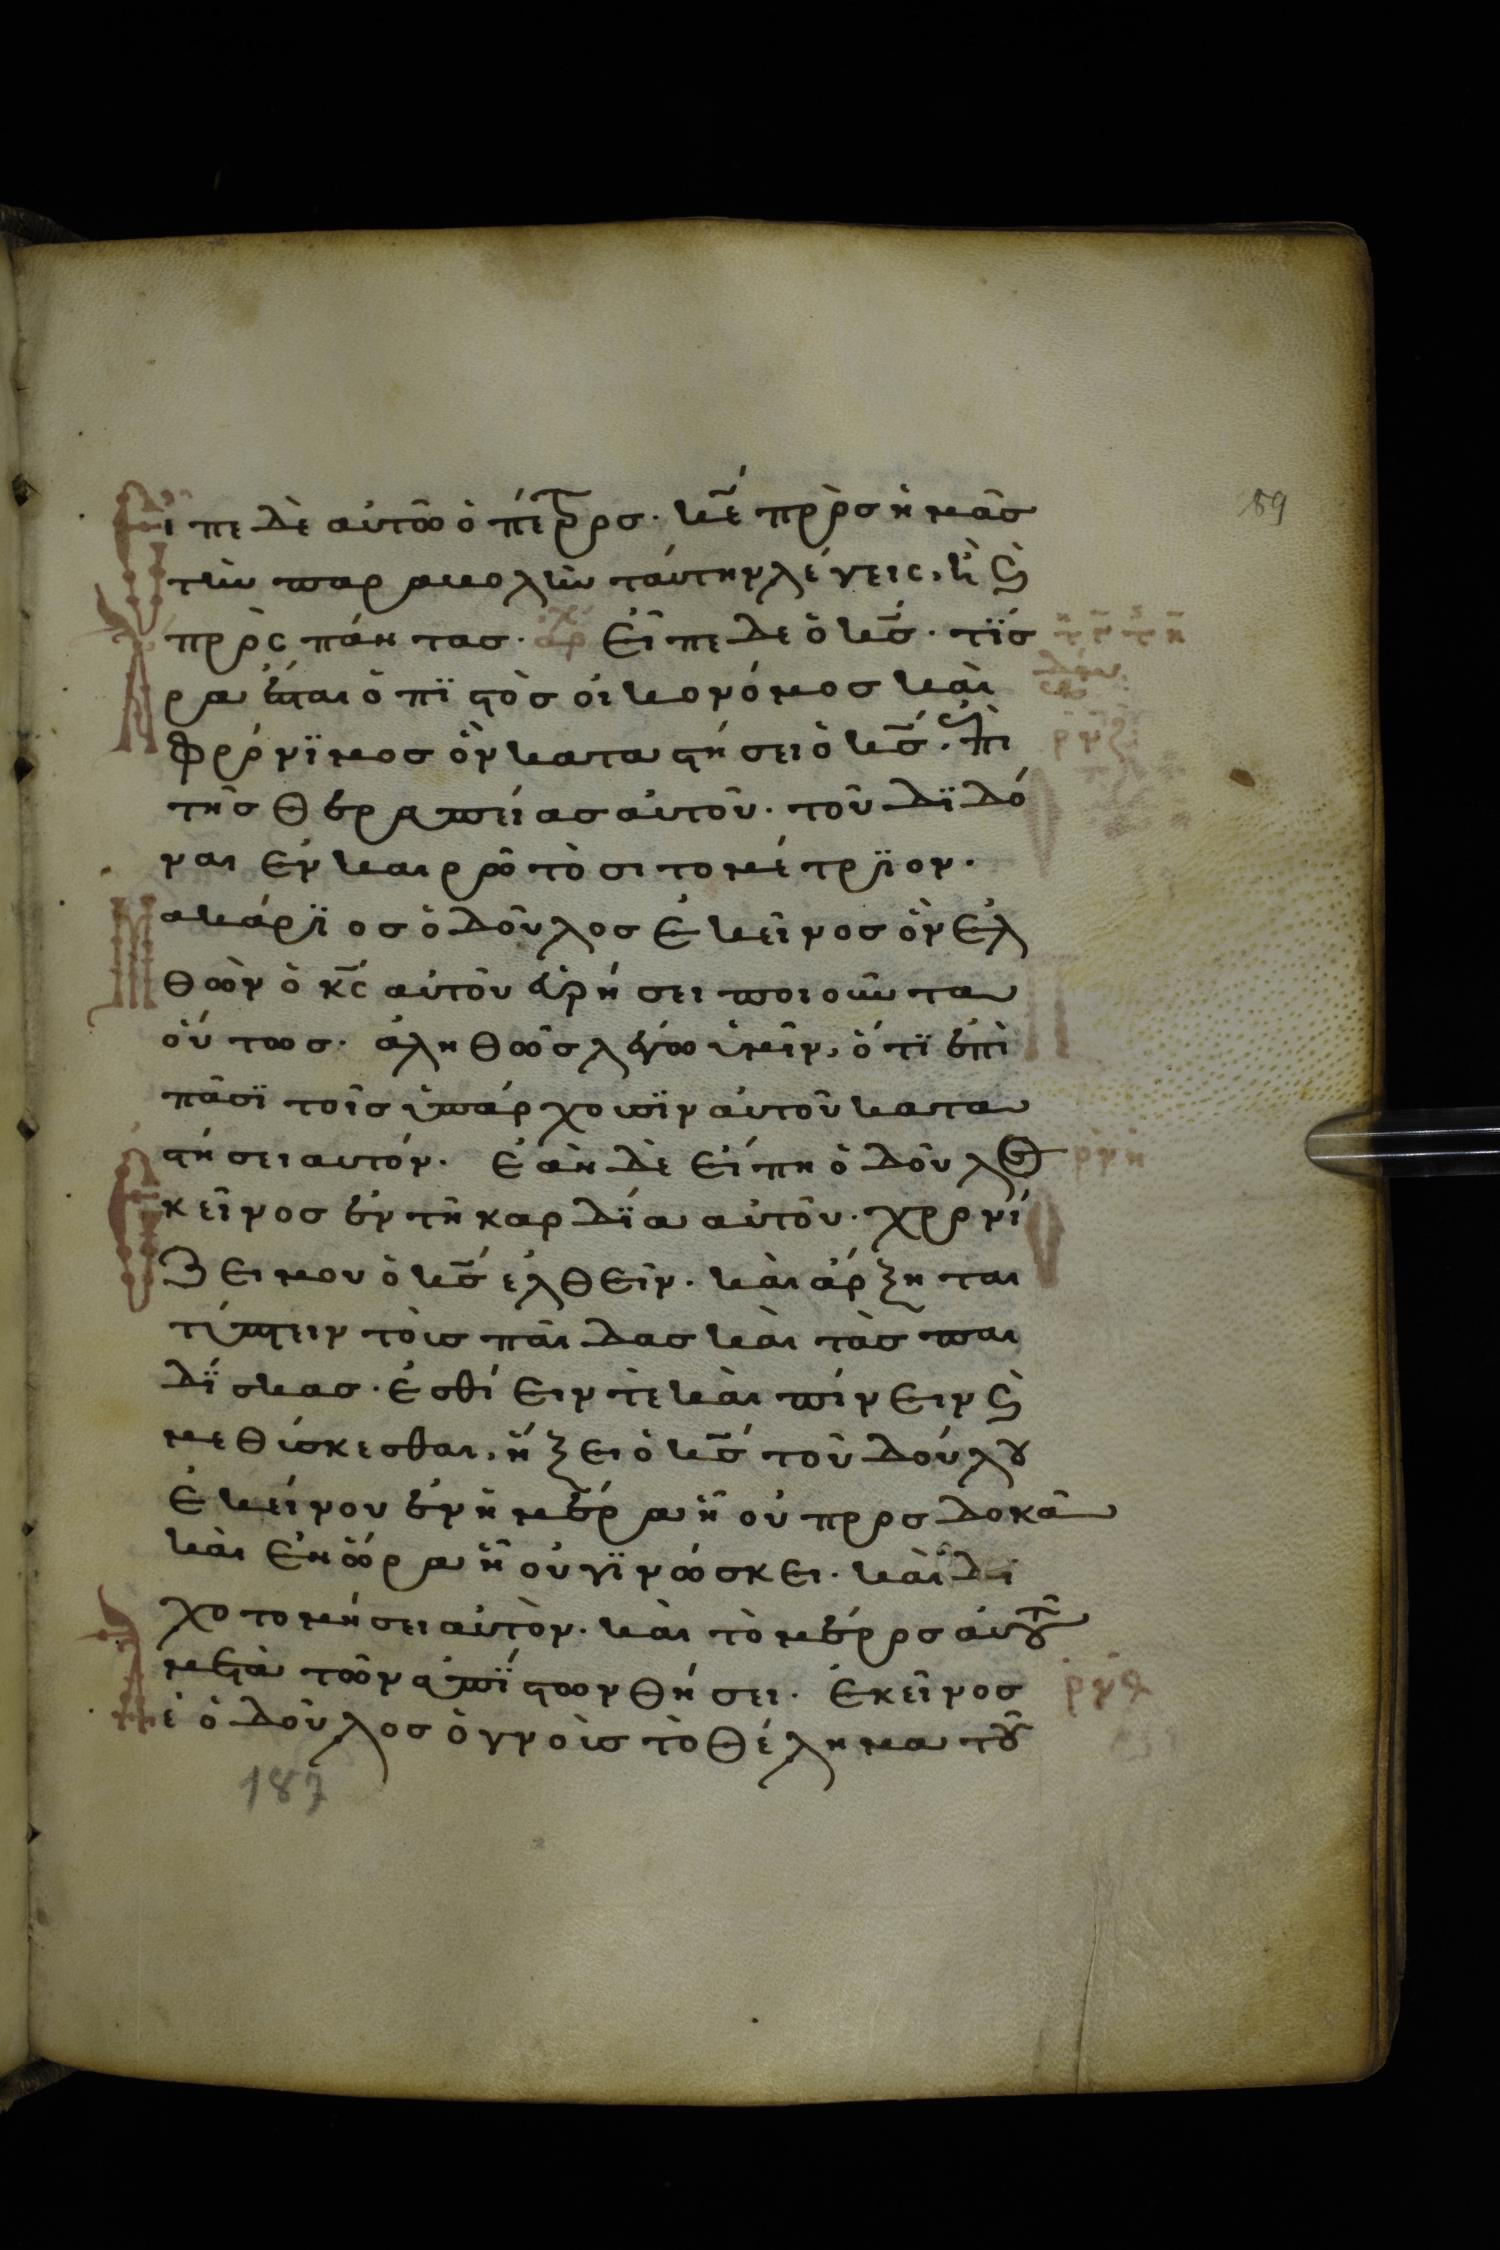 189
Εἶπε δὲ αὐτῶ ὁ πέτρος· κε̄ πρὸσ ἡμᾶσ
τὴν παραβολὴν ταύτην λέγεις, ἢ ϗ
πρὸς πάντασ· ἀρχ Εἶπε δὲ ὁ κσ̄· τίσ
Ἄρα ἐστὶ ὁ πιστὸσ οἰκονόμοσ καὶ
φρόνϊμοσ ὃν καταστήσει ὁ κσ̄· ἐπὶ
τῆσ θεραπείασ αὐτοῦ· τοῦ δϊδό
ναι ἐν καιρῶ τὸ σιτομέτρϊον·
Μακάρϊοσ ὁ δοῦλοσ ἐκεῖνοσ ὃν ἐλ
θὼν ὁ κς̄ αὐτοῦ εὑρήσει ποιοῦντα
οὕτωσ· ἀληθῶσ λέγω ὑμῖν, ὅτϊ ἐπὶ
πᾶσϊ τοῖσ ὑπάρχουσϊν αὐτοῦ κατα
στήσει αυτόν· Ἐὰν δὲ εἴπη ὁ δοῦλοσ ρνη
Ἐκεῖνοσ ἐν τῆ καρδΐα αὐτοῦ· χρονί
ζει μου ὁ κσ̄ ἐλθεῖν· καὶ ἄρξηται
τύπτειν τοὺσ παῖδασ καὶ τὰσ παι
δΐσκασ· ἐσθίειν τὲ καὶ πίνειν ϗ
μεθίσκεσθαι, ἥξει ὁ κσ̄ τοῦ δούλου
ἐκείνου ἐν ἡμέρα ἧ οὐ προσδοκᾶ
καὶ ἐν ὥρα ἧ οὐ γϊνώσκει· καὶ δι
χοτομήσει αὐτὸν· καὶ τὸ μέροσ αὐτοῦ
μετὰ τῶν ἀπΐστων θήσει· Ἐκεῖνοσ ρνθ
Δὲ ὁ δοῦλοσ ὁ γνοὺσ τὸ θέλημα τοῦ
187